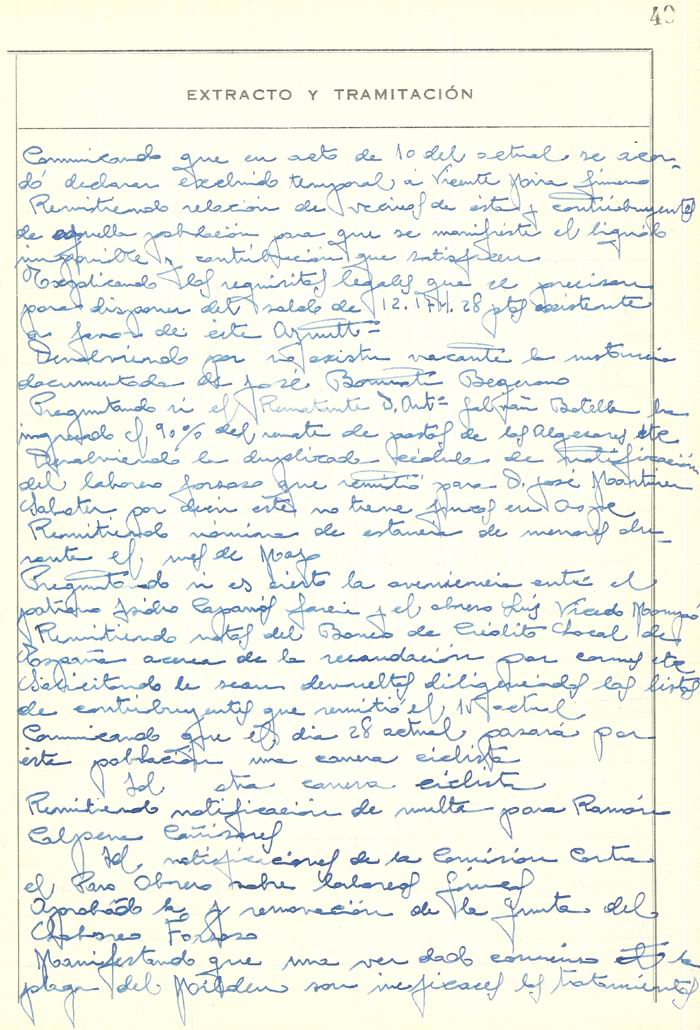 49
EXTRACTO Y TRAMITACIÓN
Comunicando que en acto de 10 del actual se acor-
dó declarar excluido temporal a Vicente Mira Jimeno
Remitiendo relación de vecinos de esta y contribuyentes
de aquella población para que se manifieste el líquido
imponible y contribución que satisfacen
los requisitos legales que se precisan
para disponer del saldo de 12.174.28 ptas existente
a favor de este Ayuntt=
Devolviendo por no existir vacante la instancia
documentada de José Bonmatí
Preguntando si el Rematante D. Antº Galvañ Botella ha
ingresado el 90% del remate de pastos de los Algezares etc
Devolviendo la duplicada cédula de notificación
del laboreo forzoso que remitió para D. José Martínez
Sabater por decir este no tiene fincas en Aspe
Remitiendo nómina de estancia de menores du-
rante el mes de Mayo
Preguntando si es cierto la avenencia entre el
patrono Isidro García y el obrero Luis Vicedo
Remitiendo notas del Banco de Crédito Local de
España acerca de la recaudación por carnes etc
Solicitando le sean devueltos diligenciados las listas
de contribuyentes que remitió el 10 actual
Comunicando que el dia 28 actual pasará por
este población una carrera ciclista
Id otra carrera ciclista
Remitiendo notificación de multa para Ramón
Calpena Cañizares
Id. notificaciones de la Comisión Contra
el Paro Obrero sobre labores fincas
Aprobado la y renovación de la Junta del
Laboreo Forzoso
Manifestando que una vez dado comienzo la
plaga del Mildeu son ineficaces los tratamientos